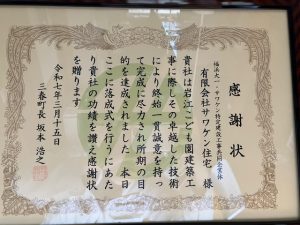 感謝状
福浜大一・サワケン特定建設工事共同企業体
有限会社サワケン住宅 様
貴社は岩江こども園建築工
事に際しその卓越した技術
により終始一貫誠意を持っ
て完成に尽力され所期の目
的を達成されました 本日
ここに落成式を行うにあた
り貴社の功績を讃え感謝状
を贈ります
令和七年三月十五日
三春町長 坂本浩之